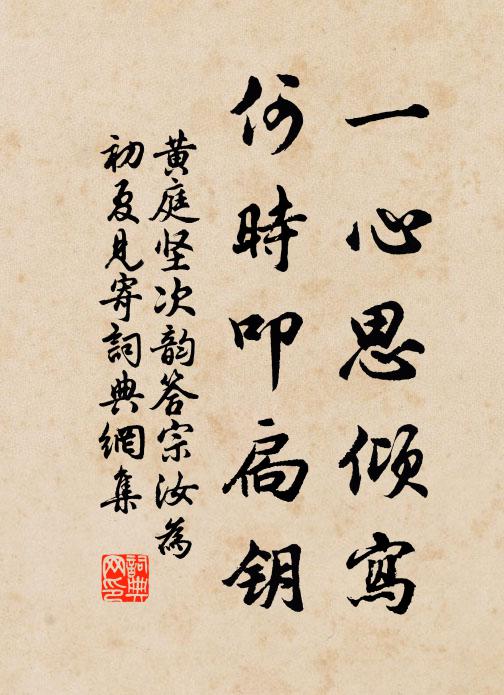 一心思倾寫
何時叩扃钥
黄庭坚次韵答宗汝為
初夏見寄詞典網集
詞典
网印